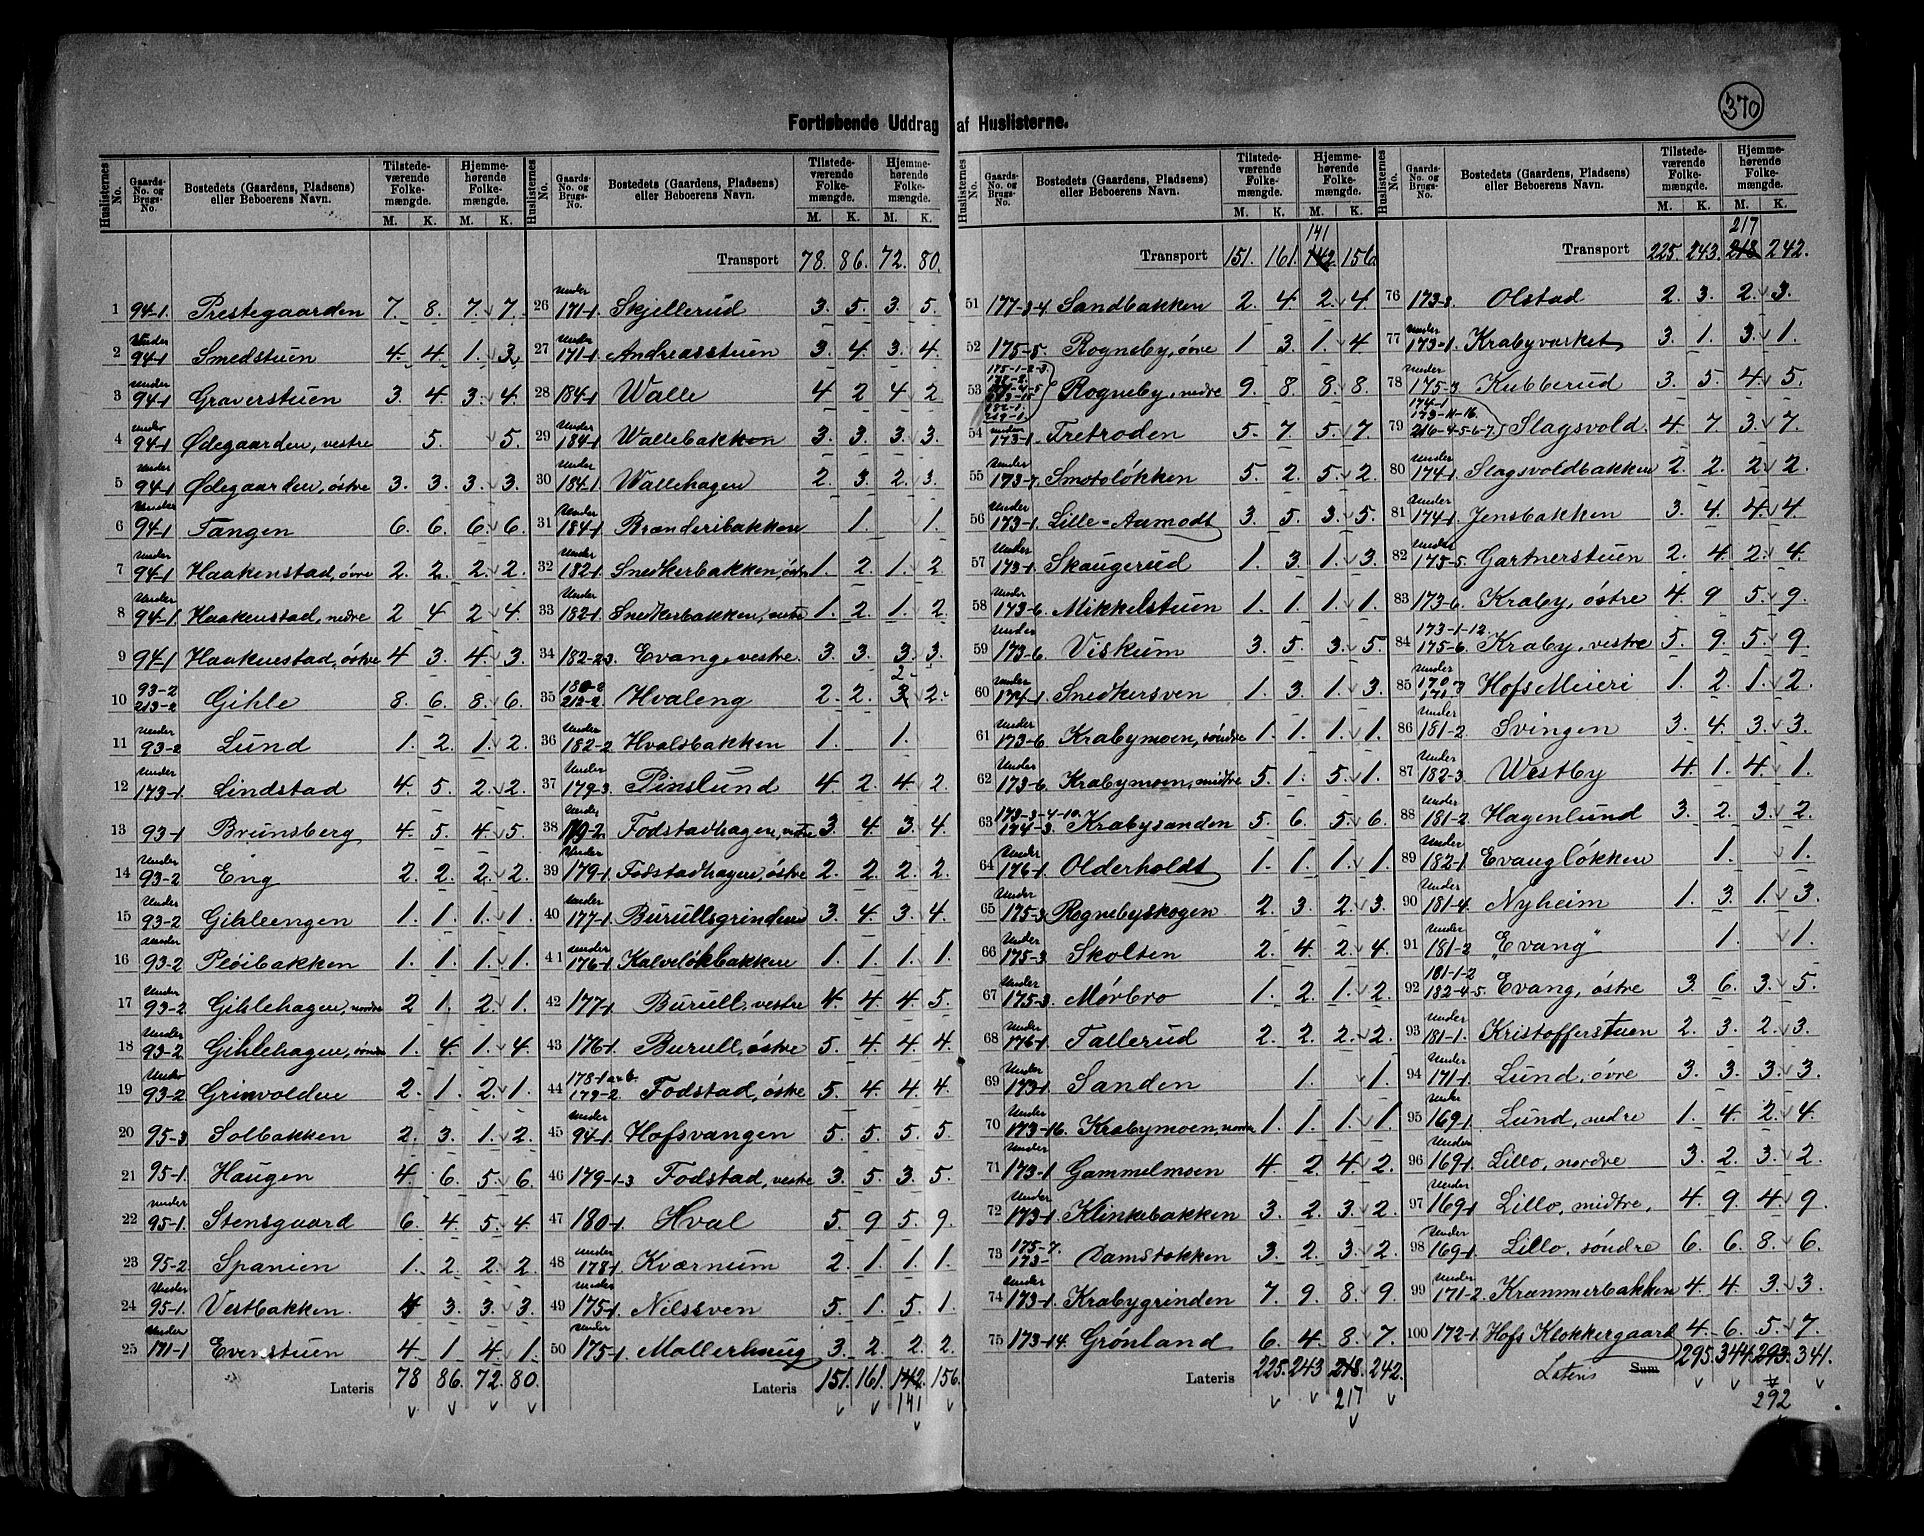 370
Fortløbende Uddrag af Huslisterne.
Huslisternes No. Gaards-No. og Brugs-No. Bostedets (Gaardens, Pladsens) eller Beboerens Navn. Tilstedeværende Folkemængde. M. K. Hjemmehørende Folkemængde. M. K.
1 94-1. Prestegaarden 7. 8. 7. 7.
2 Under 94-1 Smedstuen 4. 4. 1. 3.
3 Under 94-1 Graverstuen 3. 4. 3. 4.
4 Under 94-1 Ødegaarden, vestre 5. 5.
5 Under 94-1 Ødegaarden, östre 3. 3. 3. 3.
6 Under 94-1 Tangen 6. 6. 6. 6.
7 Under 94-1 Haakenstad, övre 2. 2. 2. 2.
8 Under 94-1 Haakenstad, nedre 2 4 2 4.
9 94-1 Haakenstad, östre 4 3. 4. 3.
10 93-2 213-2 Gihle 8. 6. 8. 6.
11 Under 93-2 Lund 1. 2. 1. 2.
12 Under 173-1 Lindstad 4. 5. 2. 2.
13 93-1 Brunsberg 4. 5. 4. 5.
14 Under 93-2 Eng 2. 2. 2. 2.
15 Under 93-2 Gihleengen 1. 1. 1. 1.
16 Under 93-2 Plöibakken 1. 1. 1. 1.
17 Under 93-2 Gihlehagen, nordre 2 1. 2. 1.
18 Under 93-2 Gihlehagen, söndre 1. 4. 1. 4.
19 Under 93-2 Grinvolden 2. 1. 2. 1.
20 95-3 Solbakken 2. 3. 1. 2.
21 95-1. Haugen 4. 6. 5. 6.
22 under 95-1. Stensgaard 6. 4. 5. 4.
23 95-2 Spanien 1. 2. 2. 2.
24 Under 95-1. Vestbakken. 4 3. 3. 3.
25 Under 171-1 Evenstuen 4. 1. 4. 1.
Lateris 78 86. 72. 80.
Huslisternes No. Gaards-No. og Brugs-No. Bostedets (Gaardens, Pladsens) eller Beboerens Navn. Tilstedeværende Folkemængde. M. K. Hjemmehørende Folkemængde. M. K.
Transport 78. 86. 72. 80.
26 Under 171-1. Skjellerud 3. 5. 3. 5.
27 Under 171-1 Andreasstuen 3. 4. 3. 4.
28 184-1 Walle 4 2 4 2
29 Under 184-1 Wallebakken 3. 3. 3. 3.
30 Under 184-1 Wallehagen 2. 3. 2. 3.
31 Under 184-1 Brænderibakken 1. 1.
32 Under 182-1 Snedkerbakken, östre 1. 2. 1. 2
33 Under 182-1 Snedkerbakken, vestre 1. 2. 1. 2
34 182-23. Evang, vestre. 3. 3. 3. 3.
35 212-2. Hvaleng 2. 2. 2. 3 2.
36 Under 182-2 Hvalsbakken 1. 1.
37 Under 179-3 Pinslund 4 2 4 2
38 Under 179-2. Fodstadhagen, vestre 3. 4. 3. 4
39 Under 179-1 Fodstadhagen, östre 2. 2. 2. 2.
40 Under 177-1 Burullsgrinden 3 4. 3. 4.
41 under 176-1 Kalvelökbakken 1. 1. 1. 1
42 177-1 Burull, vestre 4. 4. 4 5.
43 176-1. Burull, östre 5. 4. 4. 4.
44 178-1 a+b. 179-2. Fodstad, östre 5. 4. 4. 4.
45 Under 94-1. Hofsvangen 5. 5. 5. 5
46 179-1-3 Fodstad, vestre 3. 5. 3. 5.
47 180-1. Hval 5. 9 5. 9.
48 Under 178-1 Kværnum 2. 1. 1. 1.
49 Under 175-1 Nilssven 5. 1. 5. 1.
50 Under 175-1. Mollerhaug 3. 2. 2. 2.
Lateris 151. 161. 142. 156.
141
Huslisternes No. Gaards-No. og Brugs-No. Bostedets (Gaardens, Pladsens) eller Beboerens Navn. Tilstedeværende Folkemængde. M. K. Hjemmehørende Folkemængde. M. K.
141
Transport 151. 161. 142. 156
51 177-3-4. Sandbakken 2. 4. 2. 4.
52 175-5. Rogneby, övre 1 3. 1. 4
53 175-1-2-3. Rogneby, nedre 9. 8. 8. 8.
54 under 173-1. Tretroden 5. 7. 5. 7.
55 Under 173-7. Smotsløkken 5. 2. 5. 2.
56 Under 173-1. Lille-Aamodt 3. 5. 3. 5.
57 Under 173-1. Skaugerud 1. 3. 1. 3.
58 Under 173-6. Mikkelstuen 1. 1. 1. 1.
59 Under 173-6. Viskum 3. 5. 3. 5.
60 Under 174-1. Snedkersven 1. 3. 1. 3.
61 Under 173-6. Krabymoen, söndre 1. 1. 1. 1.
62 Under 173-6. Krabymoen, midtre 5. 1. 5. 1.
63 173-3-4-10. 174-3. Krabysanden 5. 6. 5. 6.
64 Under 176-1. Olderholdt 1. 1. 1. 1.
65 Under 175-3 Rognebyskogen 2. 3. 2. 3.
66 Under 175-3 Skolten 2 4. 2 4.
67 Under 175-3. Mørbro 1. 2. 1. 2.
68 Under 176-1 Tallerud 2. 2. 2. 2.
69 Under 173-1 Sanden 1. 1.
70 Under 173-16. Krabymoen, nordre 1. 1. 1. 1.
71 Under 173-1 Gammelmoen 4. 2 4. 2.
72 Under 173-1 Klinkebakken 3. 2. 3. 2.
73 175-7. 173- Damstokken 3. 2. 3. 2.
74 Under 173-1. Krabygrinden 7. 9. 8. 9.
75 173-14. Grønland 6. 4. 8. 7.
Lateris 225. 243 218. 242.
217
Huslisternes No. Gaards-No. og Brugs-No. Bostedets (Gaardens, Pladsens) eller Beboerens Navn. Tilstedeværende Folkemængde. M. K. Hjemmehørende Folkemængde. M. K.
217
Transport 225. 243. 218. 242.
76 173-8. Olstad 2. 3. 2. 3.
77 Under 173-1 Krabyværket 3. 1. 3. 1.
78 Under 175-3 Kubberud 3. 5. 4. 5.
79 174-1 173-11-16. 216-4-5-6-7. Slagsvold 4. 7 3. 7.
80 Under 174-1. Slagsvoldbakken 2. 2. 2. 2.
81 Under 174-1. Jensbakken 3. 4. 4. 4.
82 Under 175-5. Gartnerstuen 2. 4. 2. 4.
83 173-6. Kraby, östre 4. 9 5. 9.
84 173-1-12. 175-6. Kraby, vestre 5. 9. 5. 9.
85 Hofs Meieri 1. 2. 1. 2.
86 Under 181-2 Svingen 3. 4. 3. 3.
87 Under 182-3. Westby 4. 1. 4. 1.
88 Under 181-2. Hagenlund 3. 2. 3. 2.
89 Under 182-1 Evangløkken 1. 1.
90 Under 181-4. Nyheim 1. 3. 1. 3.
91 Under 181-2 "Evang" 1. 1.
92 181-1-2 182-4-5. Evang, östre 3. 6. 3. 5.
93 Under 181-1. Kristofferstuen 2. 3. 2. 3.
94 Under 171-1. Lund, övre 3. 3. 3. 3.
95 Under 169-1. Lund, nedre 1. 4. 2. 4.
96 Under 169-1. Lillo, nordre 3. 2. 3. 2.
97 Under 169-1. Lillo, midtre, 4. 9. 4. 9.
98 Under 169-1. Lillo, söndre 6. 6. 8. 6.
99 Under 171-2. Kræmmerbakken 4. 4. 3. 3.
100 172-1. Hofs Klokkergaard 4. 6. 5. 7.
Lateris Sum 295. 344. 293. 341.
292